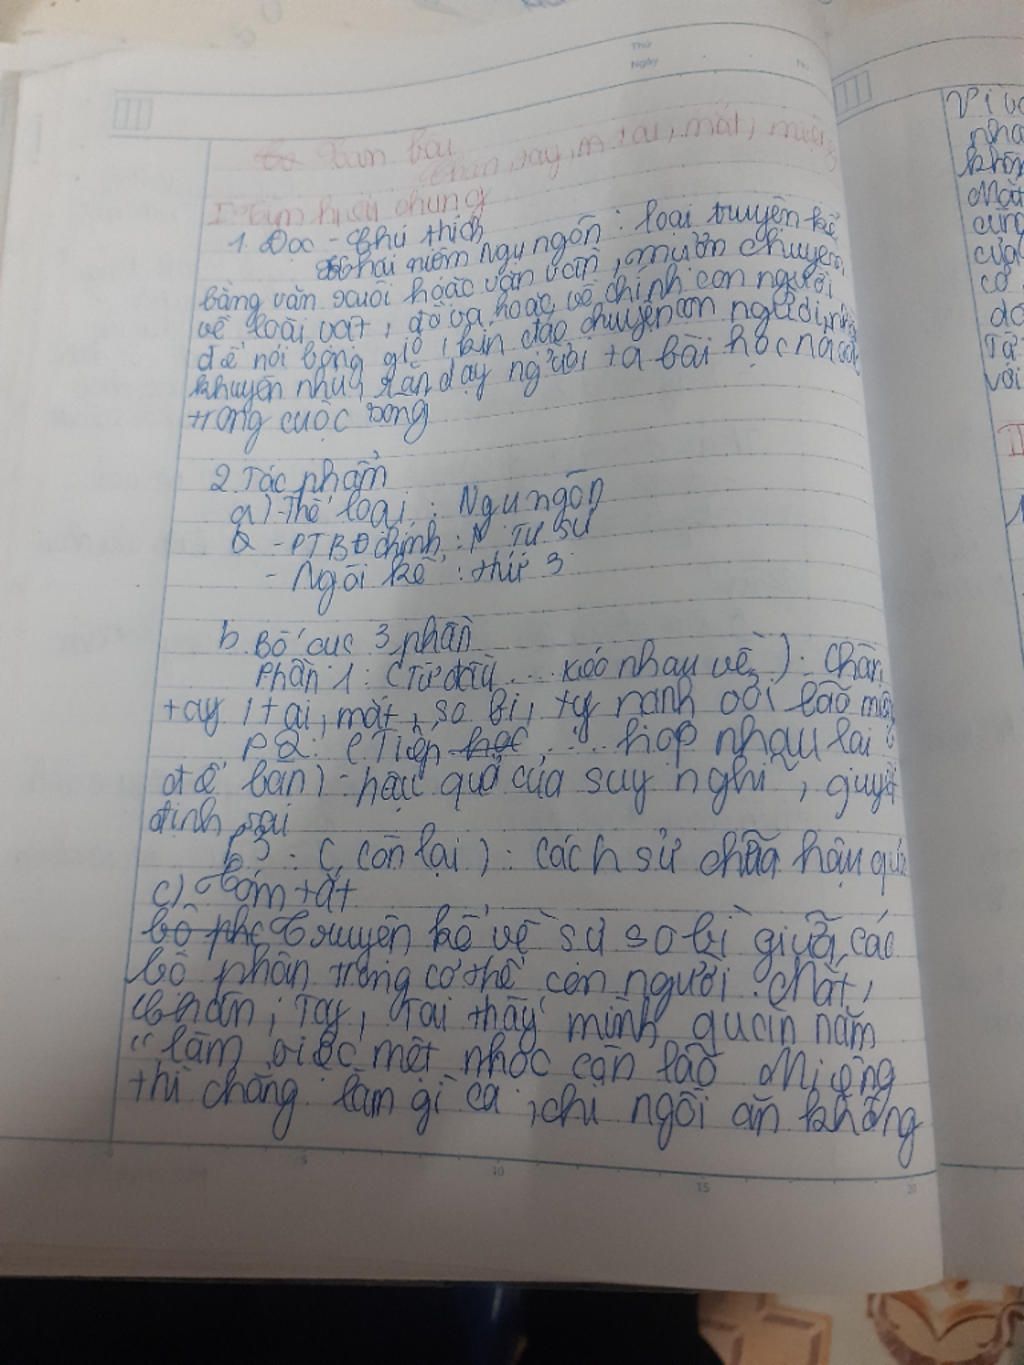 Thứ
Ngày
No
Văn bản
Chân, tay, tai, mắt, miệng
I. Tìm hiểu chung
1. Đọc - Chú thích
Khái niệm ngụ ngôn: loại truyện kể
bằng văn xuôi hoặc văn vần, mượn chuyện
về loài vật, đồ vật hoặc về chính con người
để nói bóng gió, kín đáo chuyện con người, nhằm
khuyên nhủ, răn dạy người ta bài học nào đó
trong cuộc sống
2. Tác phẩm
a) - Thể loại: Ngụ ngôn
- PTBĐ chính: Tự sự
- Ngôi kể: thứ 3
b. Bố cục 3 phần
Phần 1: (Từ đầu ... kéo nhau về): Chân,
tay, tai, mắt, so bì, tỵ nạnh với lão miệng
P2: (Tiếp ... họp nhau lại
để bàn) - hậu quả của suy nghĩ, quyết
định sai
P3: (còn lại): cách sửa chữa hậu quả
c) Tóm tắt
bộ phậ Truyện kể về sự so bì giữa các
bộ phận trong cơ thể con người. Mắt,
Chân, Tay, Tai thấy mình quanh năm
làm việc mệt nhọc còn lão Miệng
thì chẳng làm gì cả, chỉ ngồi ăn không
5
10
15
20
Vì
với
II